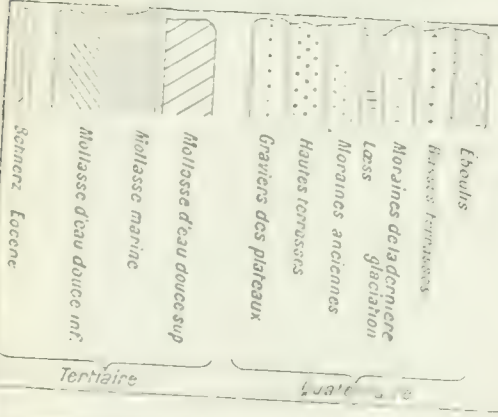 Eboulis
Basses terrasses
Moraines de la derniere
glaciation
Lœss
Moraines anciennes
Hautes terrasses
Graviers des plateaux
Mollasse d'eau douce sup
Mollasse marine
Mollasse d'eau douce inf.
Eocene
Tertiaire